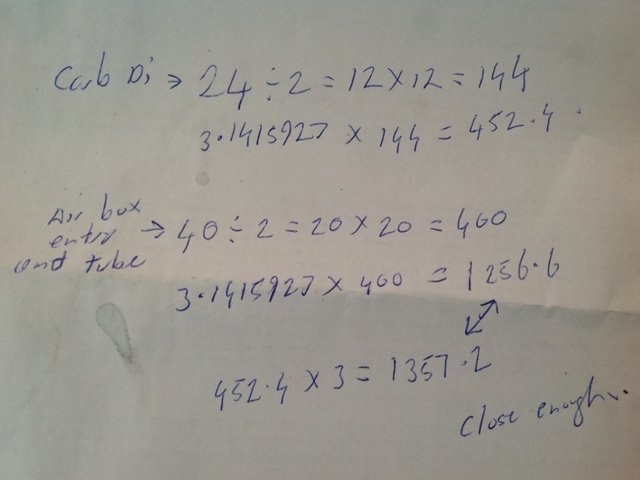 Carb Di → 24 ÷ 2 = 12 × 12 = 144
3.1415927 × 144 = 452.4.
Air box
entry
and tube → 40 ÷ 2 = 20 × 20 = 400
3.1415927 × 400 = 1256.6
452.4 × 3 = 1357.2
Close enough.